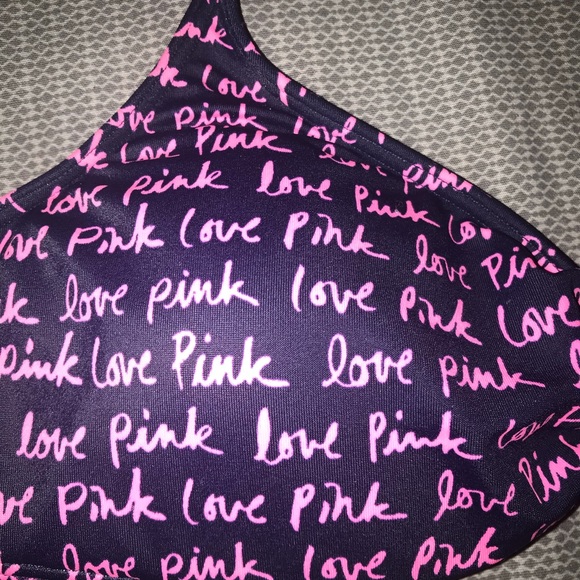 Pink love
love pink
ove pink love
love Pink
love pink love Pink
love Pink love Pink love Pink
love pink love Pink love
Pink love Pink love pink
love pink love Pink love
ve Pink love Pink love Pink
love pink love Pink